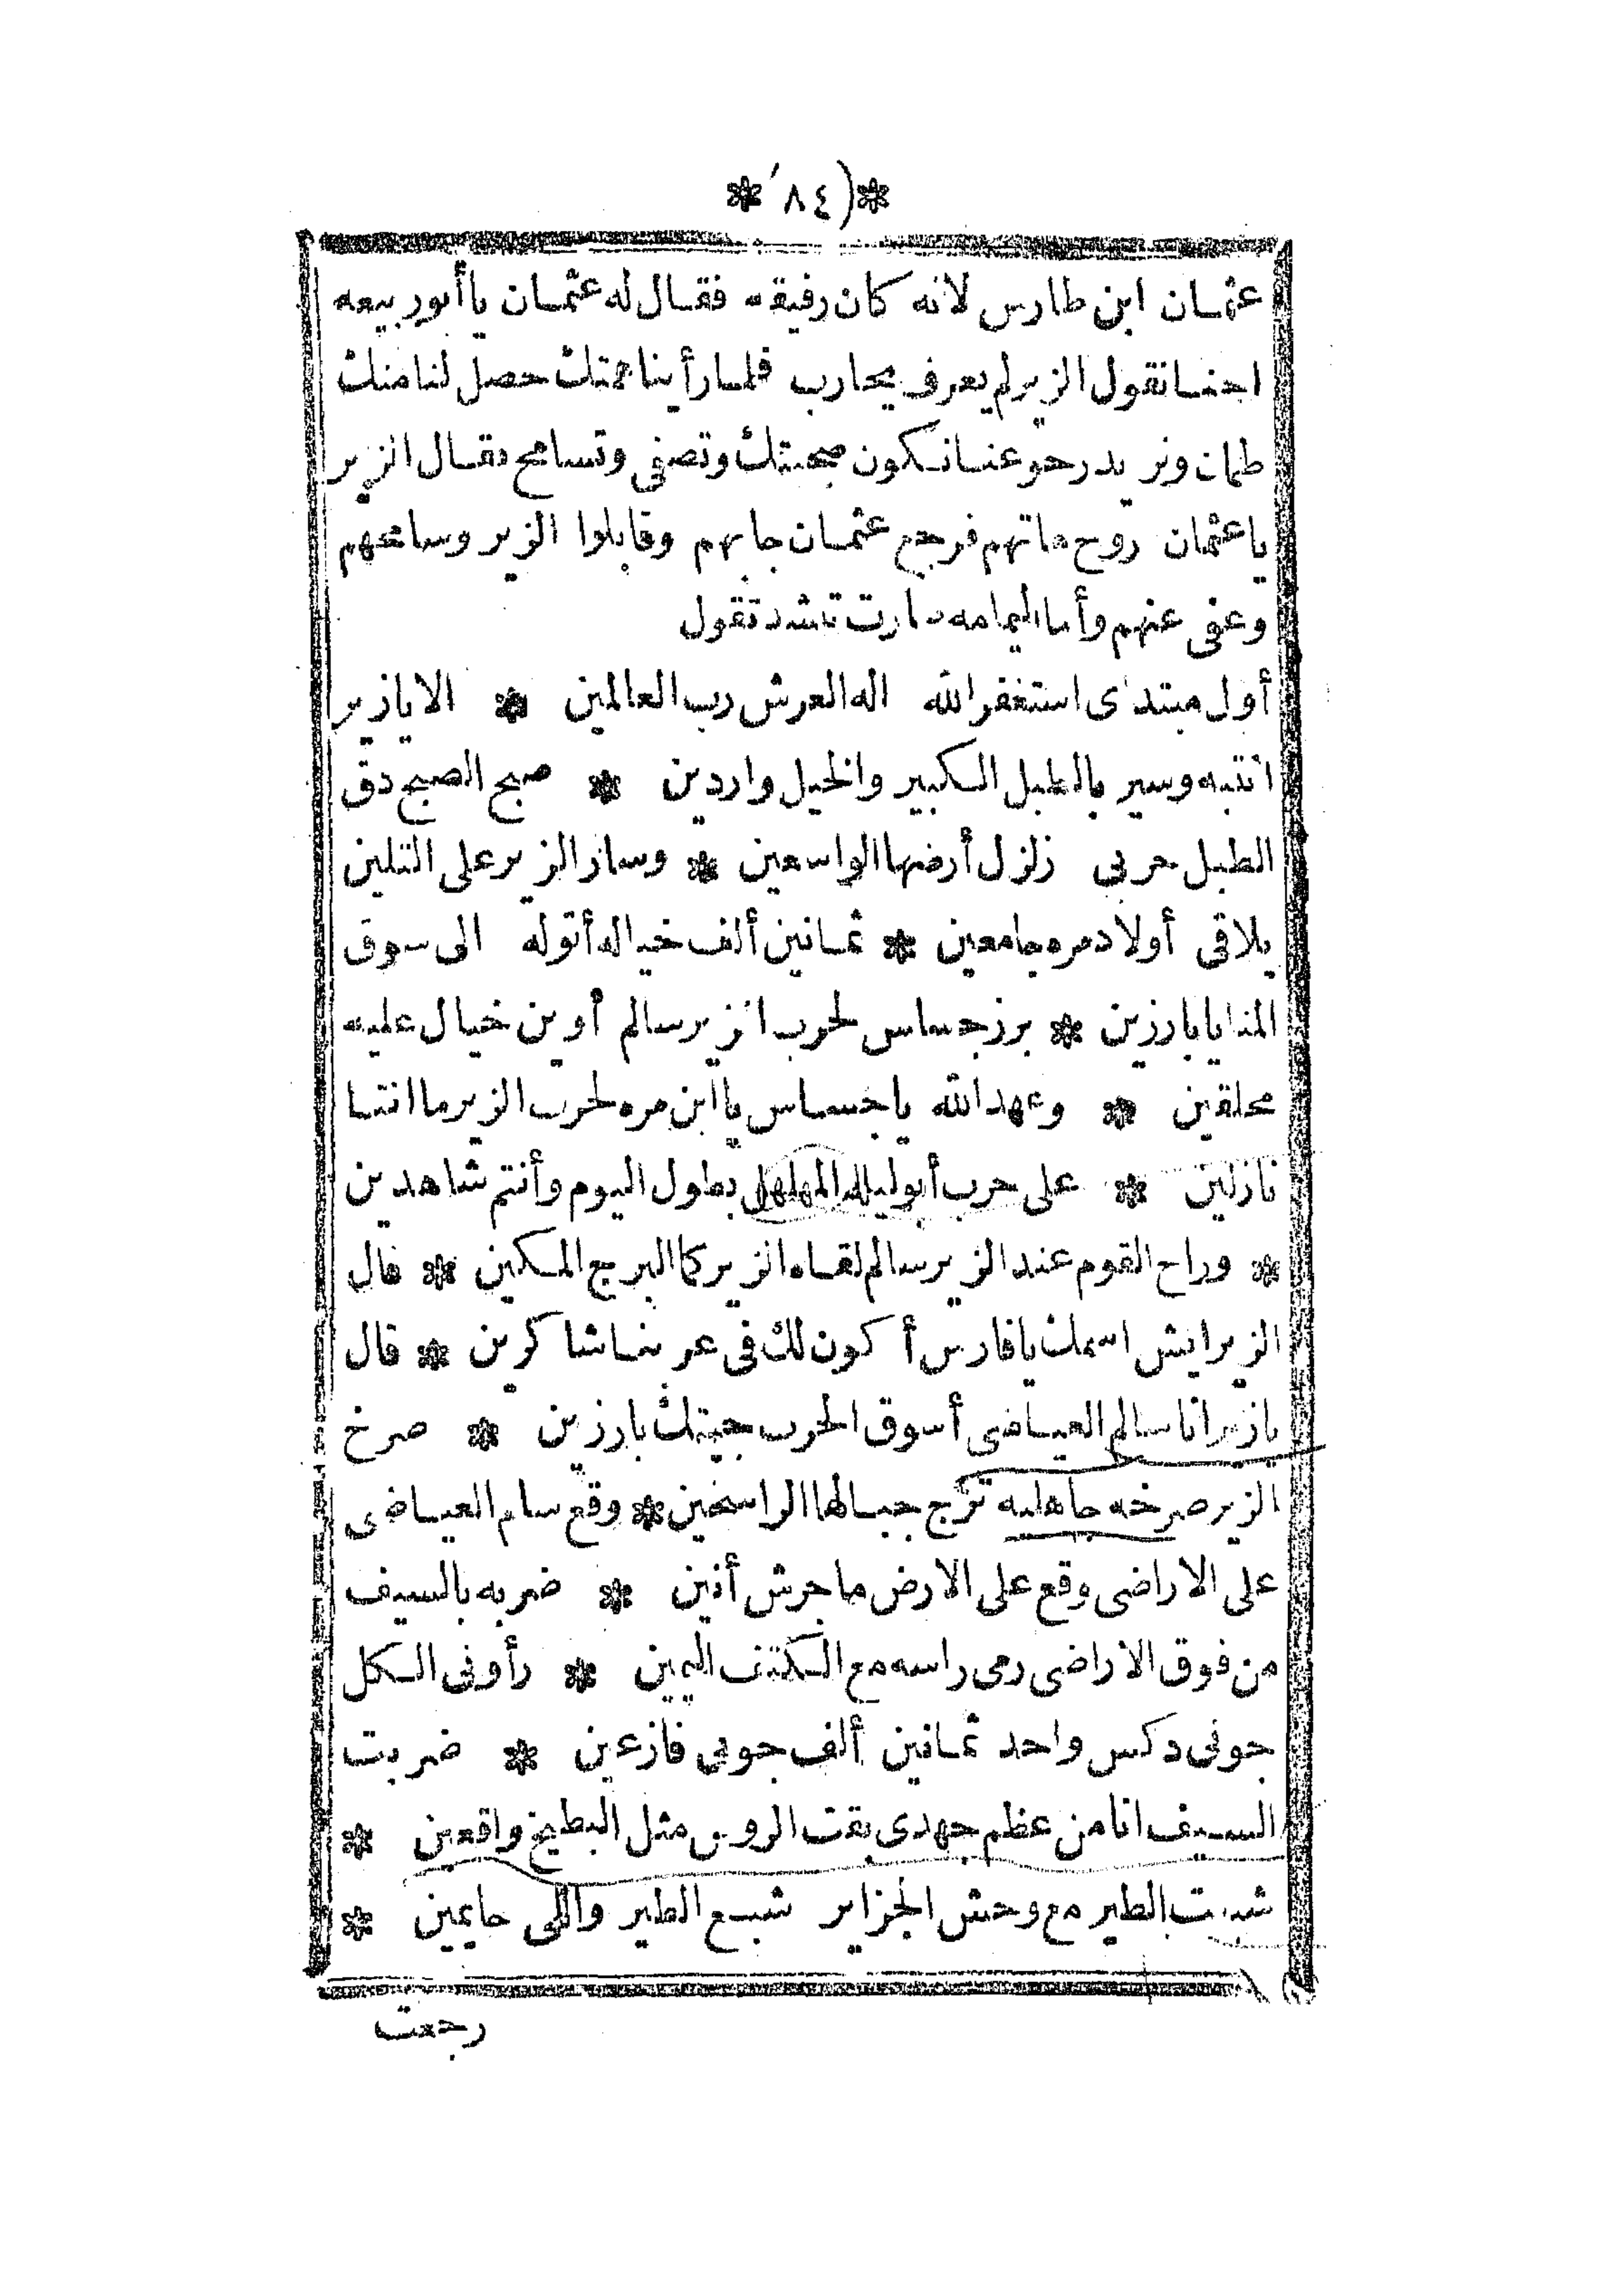 *(٨٤)*
عثمان ابن طارس لانه كان رفيقه فقال له عثمان يا أبور بيعه
احنا نقول الزير لم يعرف يحارب فلما رأينا همتك حصل لنا منك
طمان ونريد رحو عنا نكون صحبتك وتصفى وتسامح فقال الزير
يا عثمان روح هاتهم فرجع عثمان جابهم وقابلوا الزير وسامحهم
وعفى عنهم وأما اليمامه صارت تنشد تقول
أول مبتداى استغفر الله اله العرش رب العالمين * الا يا زير
انتبه وسير بالطبل الكبير والخيل واردين * صبح الصبح دق
الطبل حربى زلزل أرضها الواسعين * وسار الزير على التلين
يلاقى أولاد مره جامعين * ثمانين ألف خياله أتوله الى سوق
المنايا بارزين * برز جساس لحرب الزير سالم أوين خيال عليه
محلقين * وعهد الله يا جساس يا ابن مره لحرب الزير ما انتا
نازلين * على حرب أبو ليله المهلهل بطول اليوم وأنتم شاهدين
* وراح القوم عند الزير سالم لقاه الزير كما البريع المكين * قال
الزير ايش اسمك يا فارس أكون لك فى عربنا شاكرين * قال
يا زير انا سالم العياضى أسوق الحرب جيتك بارزين * صرخ
الزير صرخه جاهليه ترج جبالها الراسخين * وقع سالم العياضى
على الاراضى وقع على الارض ما جرش أنين * ضربه بالسيف
من فوق الاراضى رمى راسه مع الكتف اليمين * رأونى الكل
جونى دكس واحد ثمانين ألف جوبى فازعين * ضربت
السيف انا من عظم جهدى بقت الروس مثل البطيخ واقعين *
شبعت الطير مع وحش الجزاير شبع الطير واللى حايمين *
رجعت